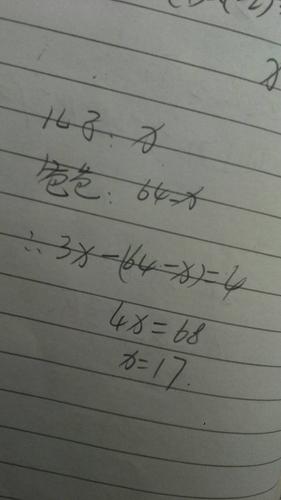 小子: x
爸爸: 64-x
∴ 3x-(64-x)=4
4x=68
x=17.